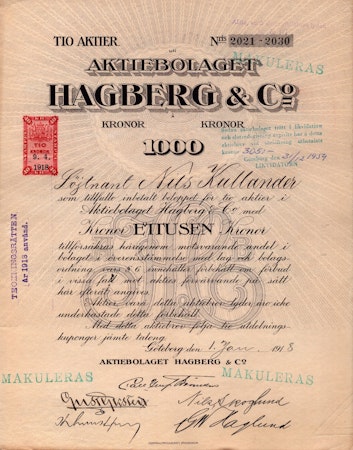 TIO AKTIER
Nris 2021-2030
MAKULERAS
AKTIEBOLAGET
HAGBERG & Co
KRONOR KRONOR
1000
Sedan aktiebolaget trätt i likvidation
kronor 305:-
Göteborg den 21/12 1939
LIKVIDATOREN
TIO
9. 4.
1918
Löjtnant Nils Kullander
som tillfullo inbetalt beloppet för tio aktier i
Aktiebolaget Hagberg & Co med
Kronor ETTUSEN Kronor
tillförsäkras härigenom motsvarande andel i
bolaget i överensstämmelse med lag och bolags-
ordning vars § 6 innehåller förbehåll om förbud
i vissa fall mot aktiers förvärvande på sätt
här efteråt angives.
Aktier vara detta aktiebrev lyder äro icke
underkastade detta förbehåll.
Med detta aktiebrev följa tio utdelnings-
kuponger jämte talong.
Göteborg den 1. Jan. 1918
AKTIEBOLAGET HAGBERG & Co
TECKNINGSRÄTTEN
år 1918 använd.
MAKULERAS
MAKULERAS
GW Haglund